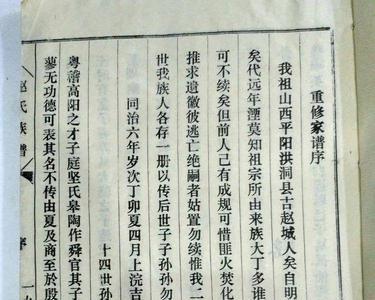 重修家谱序
我祖山西平阳洪洞县古赵城人矣自明
矣代远年湮莫知祖宗所由来族大丁多谁
可不续矣但前人己有成规可惜匪火焚化
推求遗徽彼逃亡绝嗣者姑置勿续惟我二
世我族人各存一册以传后世子子孙孙勿
同治六年岁次丁卯夏四月上浣吉
十四世孙
粤稽高阳之才子庭坚氏皋陶作舜官其子
蓼无功德可表其名不传由夏及商至於殷
赵氏族谱
序
一